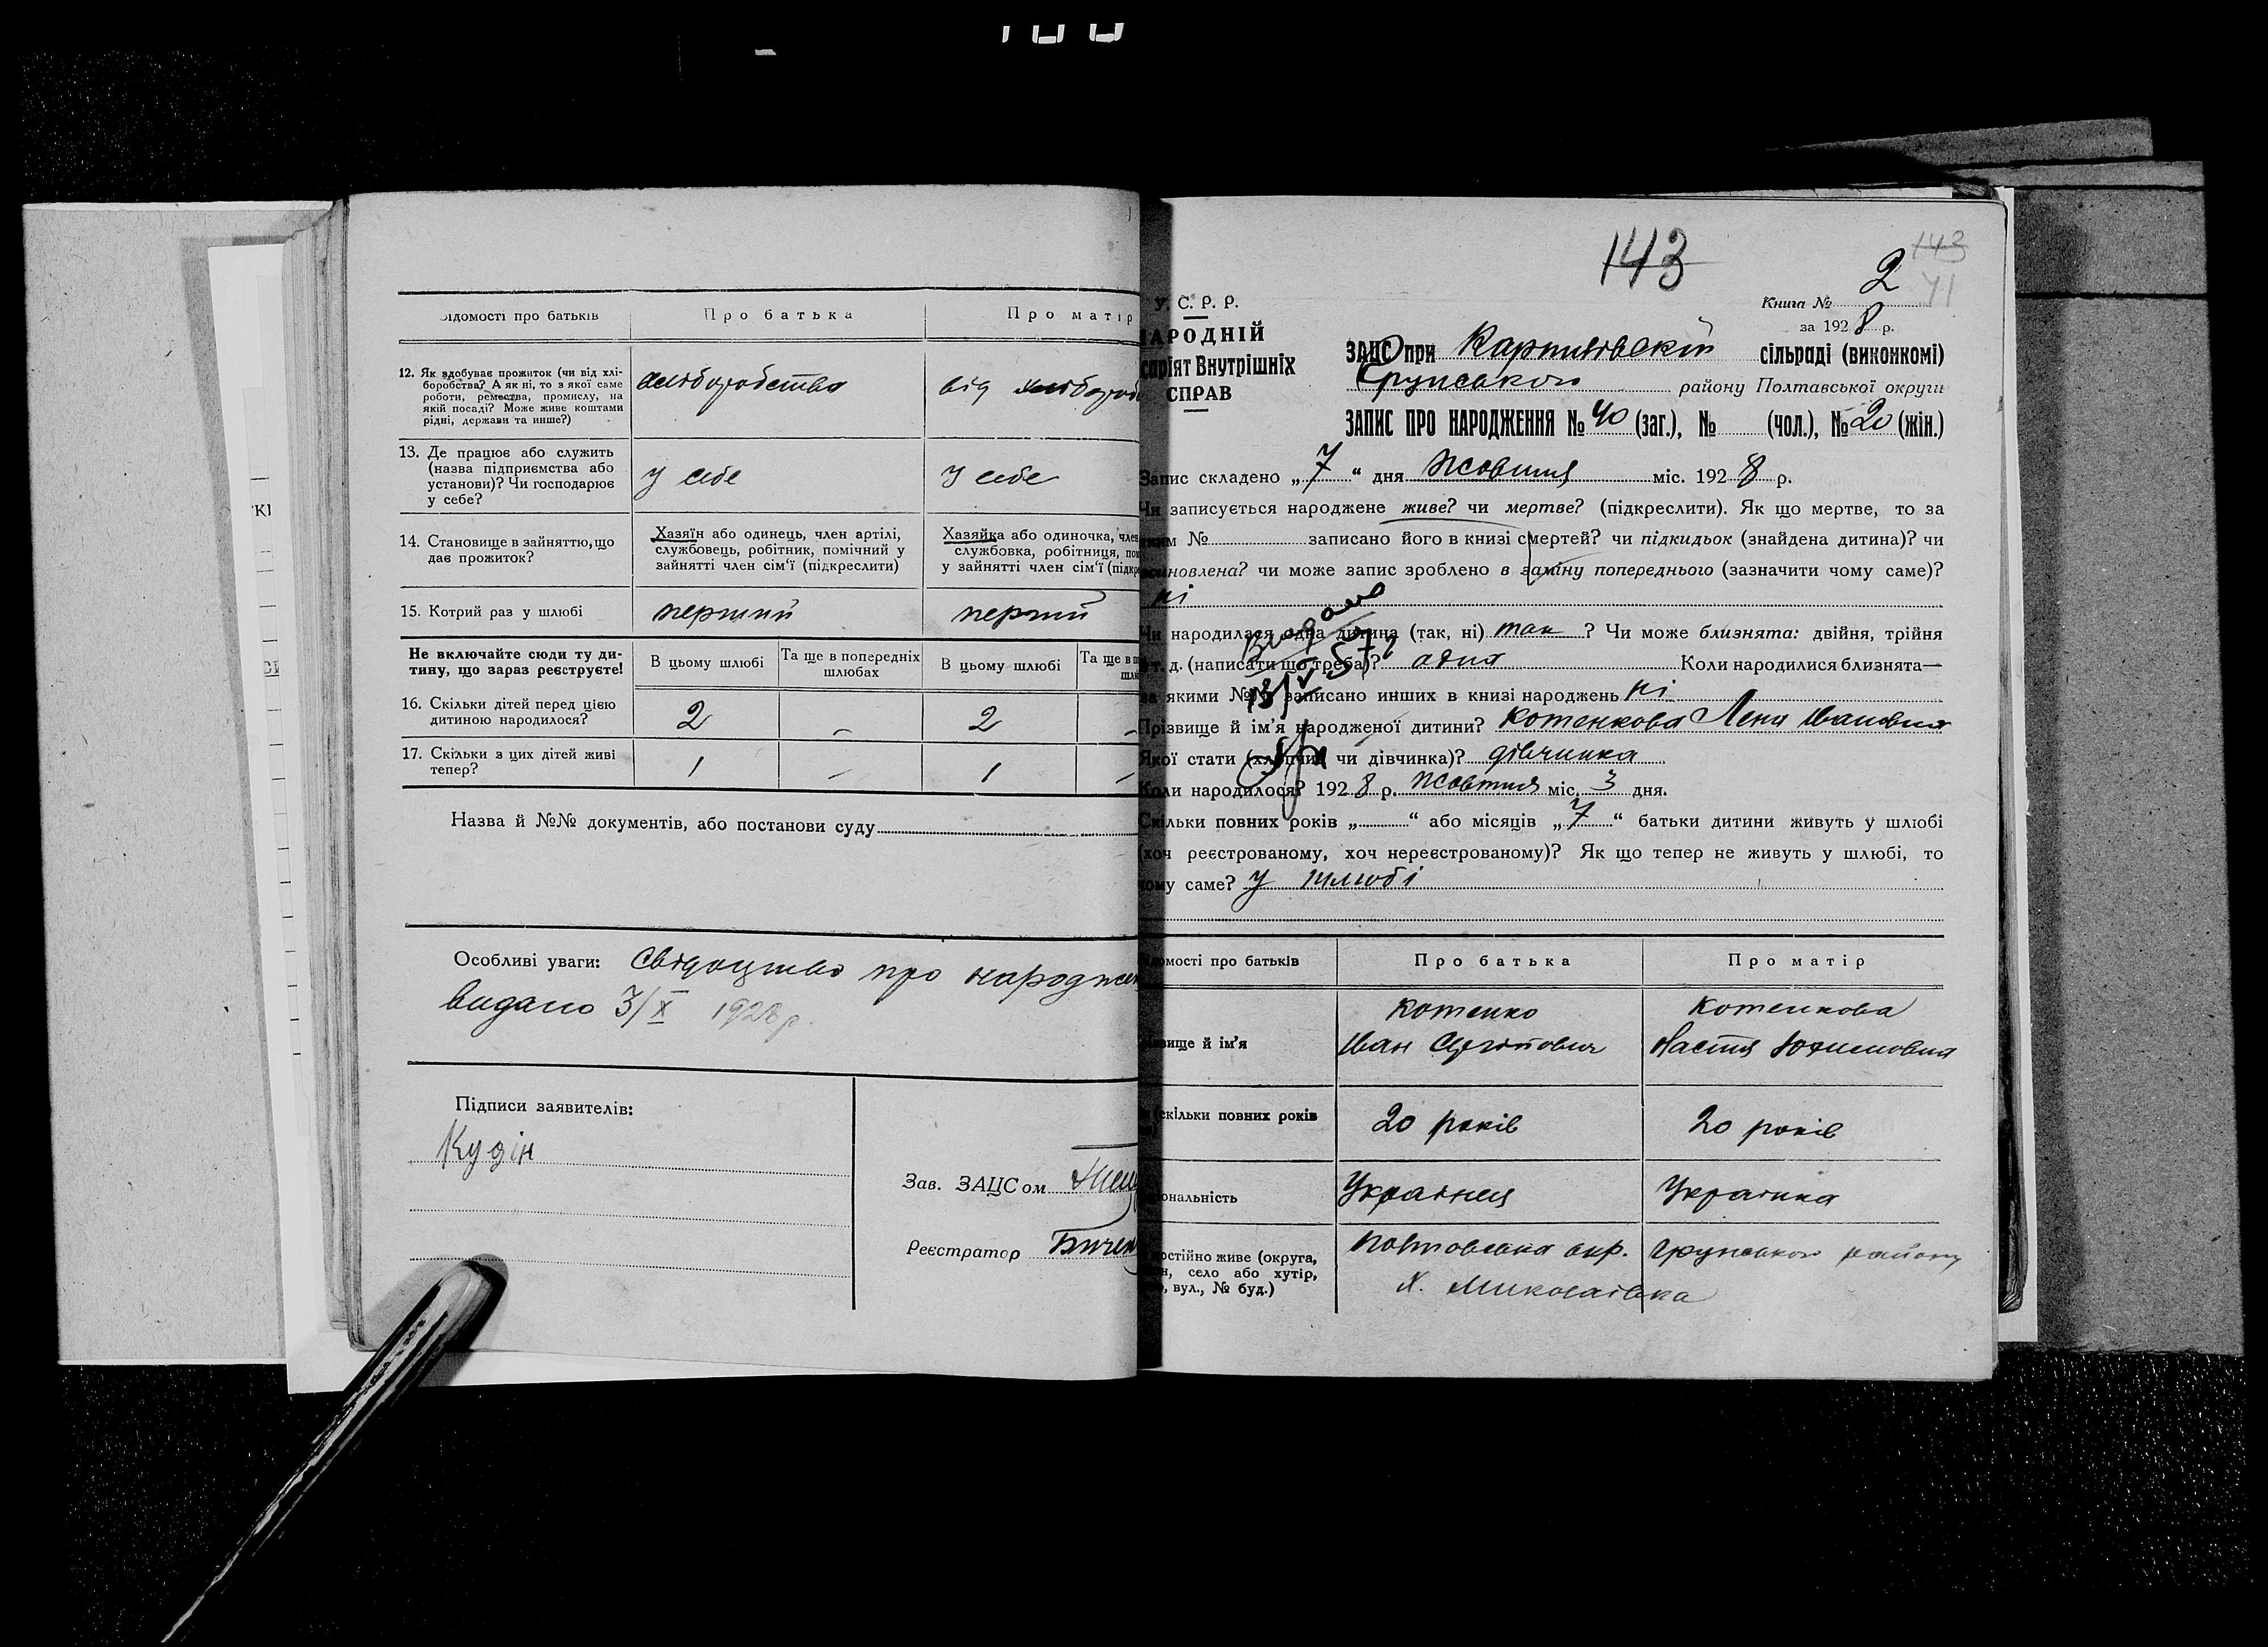 Відомості про батьків
Про батька
Про матір
12. Як здобуває прожиток (чи від хлі-
боробства? А як ні, то з якої саме
роботи, ремества, промислу, на
якій посаді? Може живе коштами
рідні, держави та инше?)
хліборобства
від хлібороб
13. Де працює або служить
(назва підприємства або
установи)? Чи господарює
у себе?
у себе
у себе
14. Становище в зайняттю, що
дає прожиток?
Хазяїн або одинець, член артілі,
службовець, робітник, помічний у
зайнятті член сім'ї (підкреслити)
Хазяйка або одиночка, член
службовка, робітниця, пом
у зайнятті член сім'ї (підкре
15. Котрий раз у шлюбі
перший
перший
Не включайте сюди ту ди-
тину, що зараз реєструєте!
В цьому шлюбі
Та ще в попередніх
шлюбах
В цьому шлюбі
Та ще в п
шлю
16. Скільки дітей перед цією
дитиною народилося?
2 – 2 –
17. Скільки з цих дітей живі
тепер?
1 – 1 –
Назва й №№ документів, або постанови суду
Особливі уваги: Свідоцтво про народжен
видано 3/X 1928 р.
Підписи заявителів:
Кудін
Зав. ЗАЦСом
Реєстратор
143
143
71
2
У. С. Р. Р.
НАРОДНІЙ
саріят Внутрішніх
СПРАВ
Книга №
за 1928 р.
ЗАЦС при Карпилівській сільраді (виконкомі)
Грунського району Полтавської округи
ЗАПИС ПРО НАРОДЖЕННЯ № 40 (заг.), № (чол.), № 20 (жін.)
Запис складено „7“ дня Жовтня міс. 1928 р.
Чи записується народжене живе? чи мертве? (підкреслити). Як що мертве, то за
яким № записано його в книзі смертей? чи підкидьок (знайдена дитина)? чи
всиновлена? чи може запис зроблено в заміну попереднього (зазначити чому саме)?
ні
Чи народилася одна дитина (так, ні) так ? Чи може близнята: двійня, трійня
і т. д. (написати що треба)? одна Коли народилися близнята—
за якими №№ записано инших в книзі народжень ні
Видано
Прізвище й ім'я народженої дитини? Котенкова Лена Івановна
Якої стати (хлопчик чи дівчинка)? дівчинка
Коли народилося? 1928 р. Жовтня міс. 3 дня.
Скільки повних років „ “ або місяців „7“ батьки дитини живуть у шлюбі
(хоч реєстрованому, хоч нереєстрованому)? Як що тепер не живуть у шлюбі, то
чому саме? у шлюбі
домості про батьків
Про батька
Про матір
звище й ім'я
Котенко
Іван
Котенкова
Настя Юхимовна
скільки повних років
20 років
20 років
ональність
Українец
Українка
постійно живе (округа,
н, село або хутір,
, вул., № буд.)
Полтовська окр. Грунського району
Х. Миколаївка